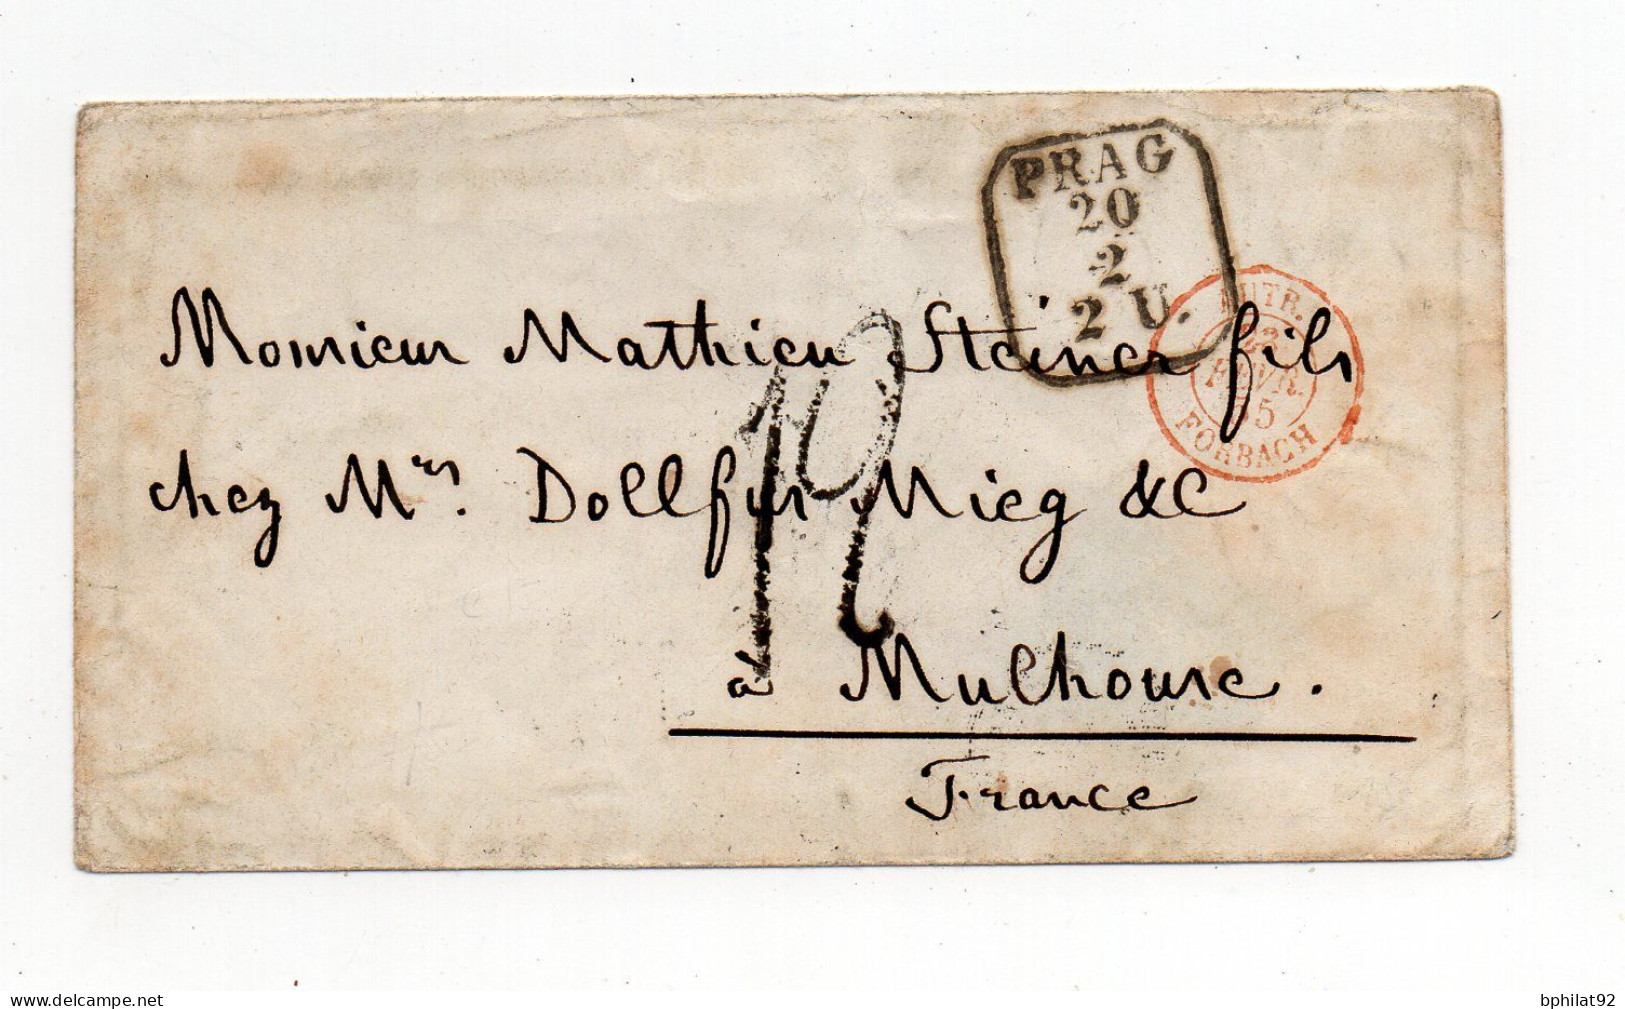 PRAG
20
2
2 U.
AUTR.
23
FEVR.
55
FORBACH
Monsieur Mathieu Steiner fils
chez Mrs. Dollfus Mieg &C
à Mulhouse.
France
delcampe.net
bphilat92